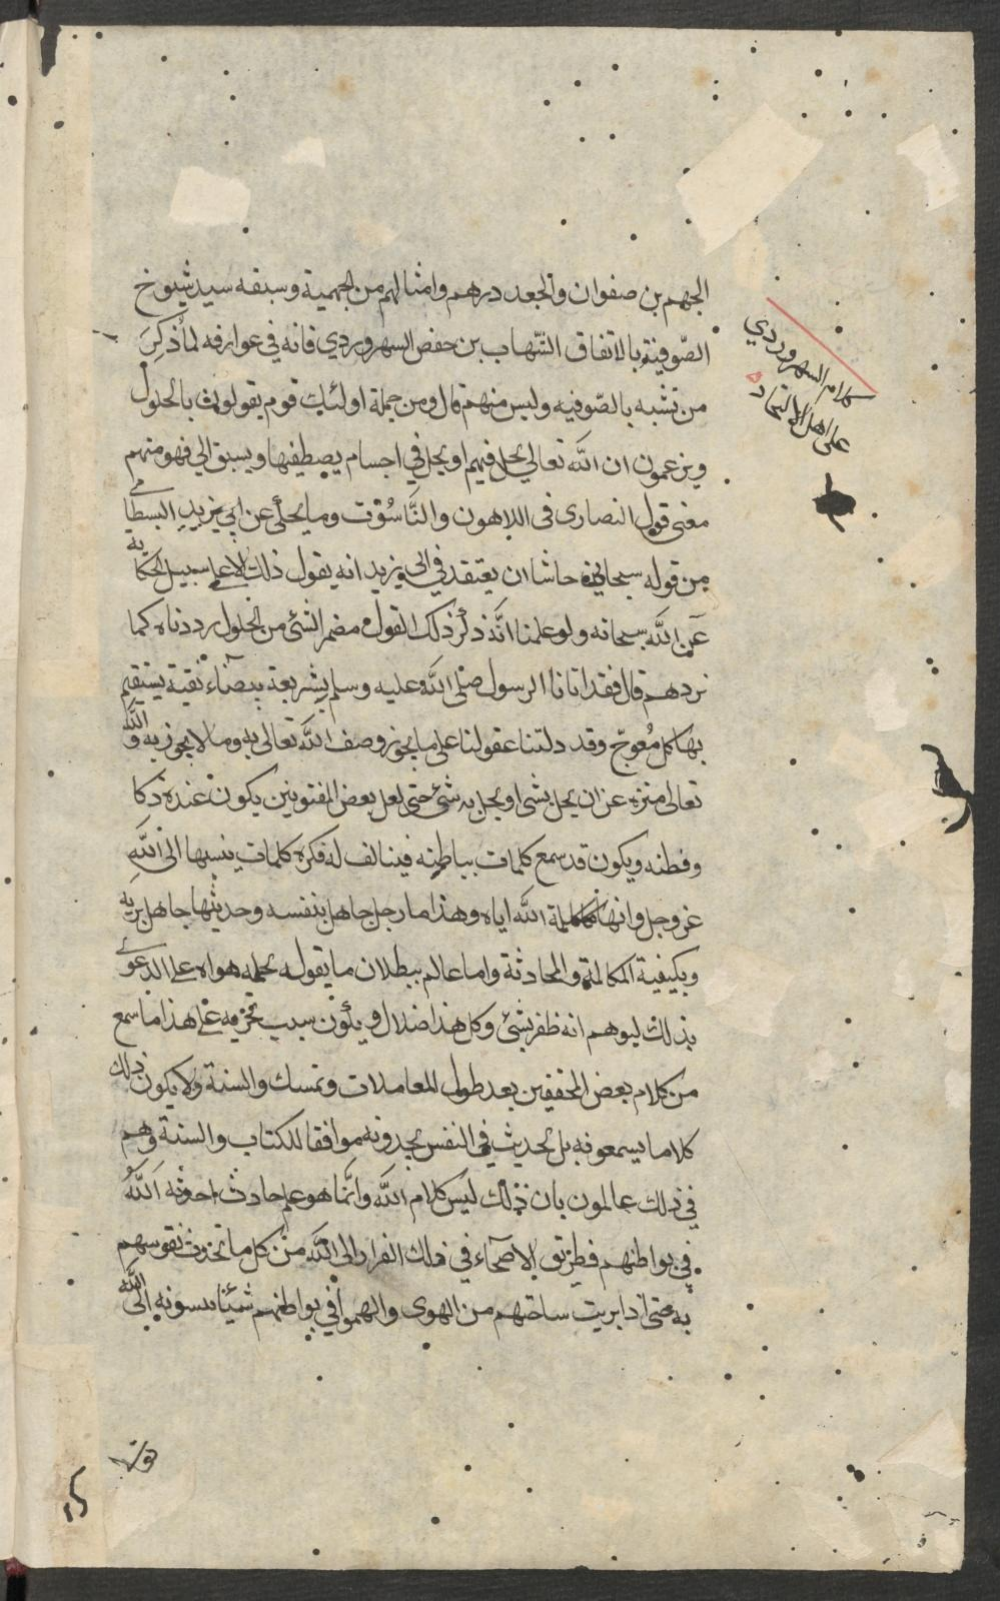 الجهم بن صفوان والجعد درهم وامثالهم من الجهمية وسبقه سيد شيوخ
الصوفية بالاتفاق الشهاب بن حفض السهروردي فانه في عوارفه لما ذكر
من تشبه بالصوفيه وليس منهم قال ومن جملة اولئك قوم يقولون بالحلول
ويزعمون ان الله تعالى يحل فيهم او يحل في اجسام يصطفيها ويسبق الى فهومهم
معنى قول النصارى فى اللاهون والناسوت وما يحكى عن ابي يزيد البسطامي
من قوله سبحاني حاشا ان يعتقد في ابي يزيد انه يقول ذلك الا على سبيل الحكاية
عن الله سبحانه ولو علمنا انه ذكر ذلك القول مضمر الشئ من الحلول رددناه كما
نردهم قال فقد اتانا الرسول صلى الله عليه وسلم بشريعة بيضاء نقية يستقيم
بها كل معوج وقد دلتنا عقولنا على ما يجوز وصف الله تعالى به وما لا يجوز به والله
تعالى منزه عن ان يحل بشى او يحل به شئ حتى لعل بعض المفتونين يكون عنده ذكا
وفطنه ويكون قد سمع كلمات بباطنه فيتالف له فكره كلمات ينسبها الى الله
عز وجل وانها مكالمة الله اياه وهذا ما رجل جاهل بنفسه وحديثها جاهل بربه
وبكيفية المكالمة والمحادثة واما عالم ببطلان ما يقوله يحمله هواه على الدعوى
بذلك ليوهم انه ظفر بشئ وكل هذا ضلال ويكون سبب تجزيه على هذا ما سمع
من كلام بعض المحققين بعد طول المعاملات وتمسك والسنة ولا يكون ذلك
كلاما يسمعونه بل لحديث في النفس يجدونه موافقا للكتاب والسنة وهم
في ذلك عالمون بان ذلك ليس كلام الله وانما هو علم حادث احدثه الله
في بواطنهم فطريق الاصحاء في ذلك الفرار الى الله من كل ما تحدث نفوسهم
به حتى اذا بريت ساحتهم من الهوى والهموا في بواطنهم شيئا ينسبونه الى الله
كلام السهروردي
على اهل الاتحاد